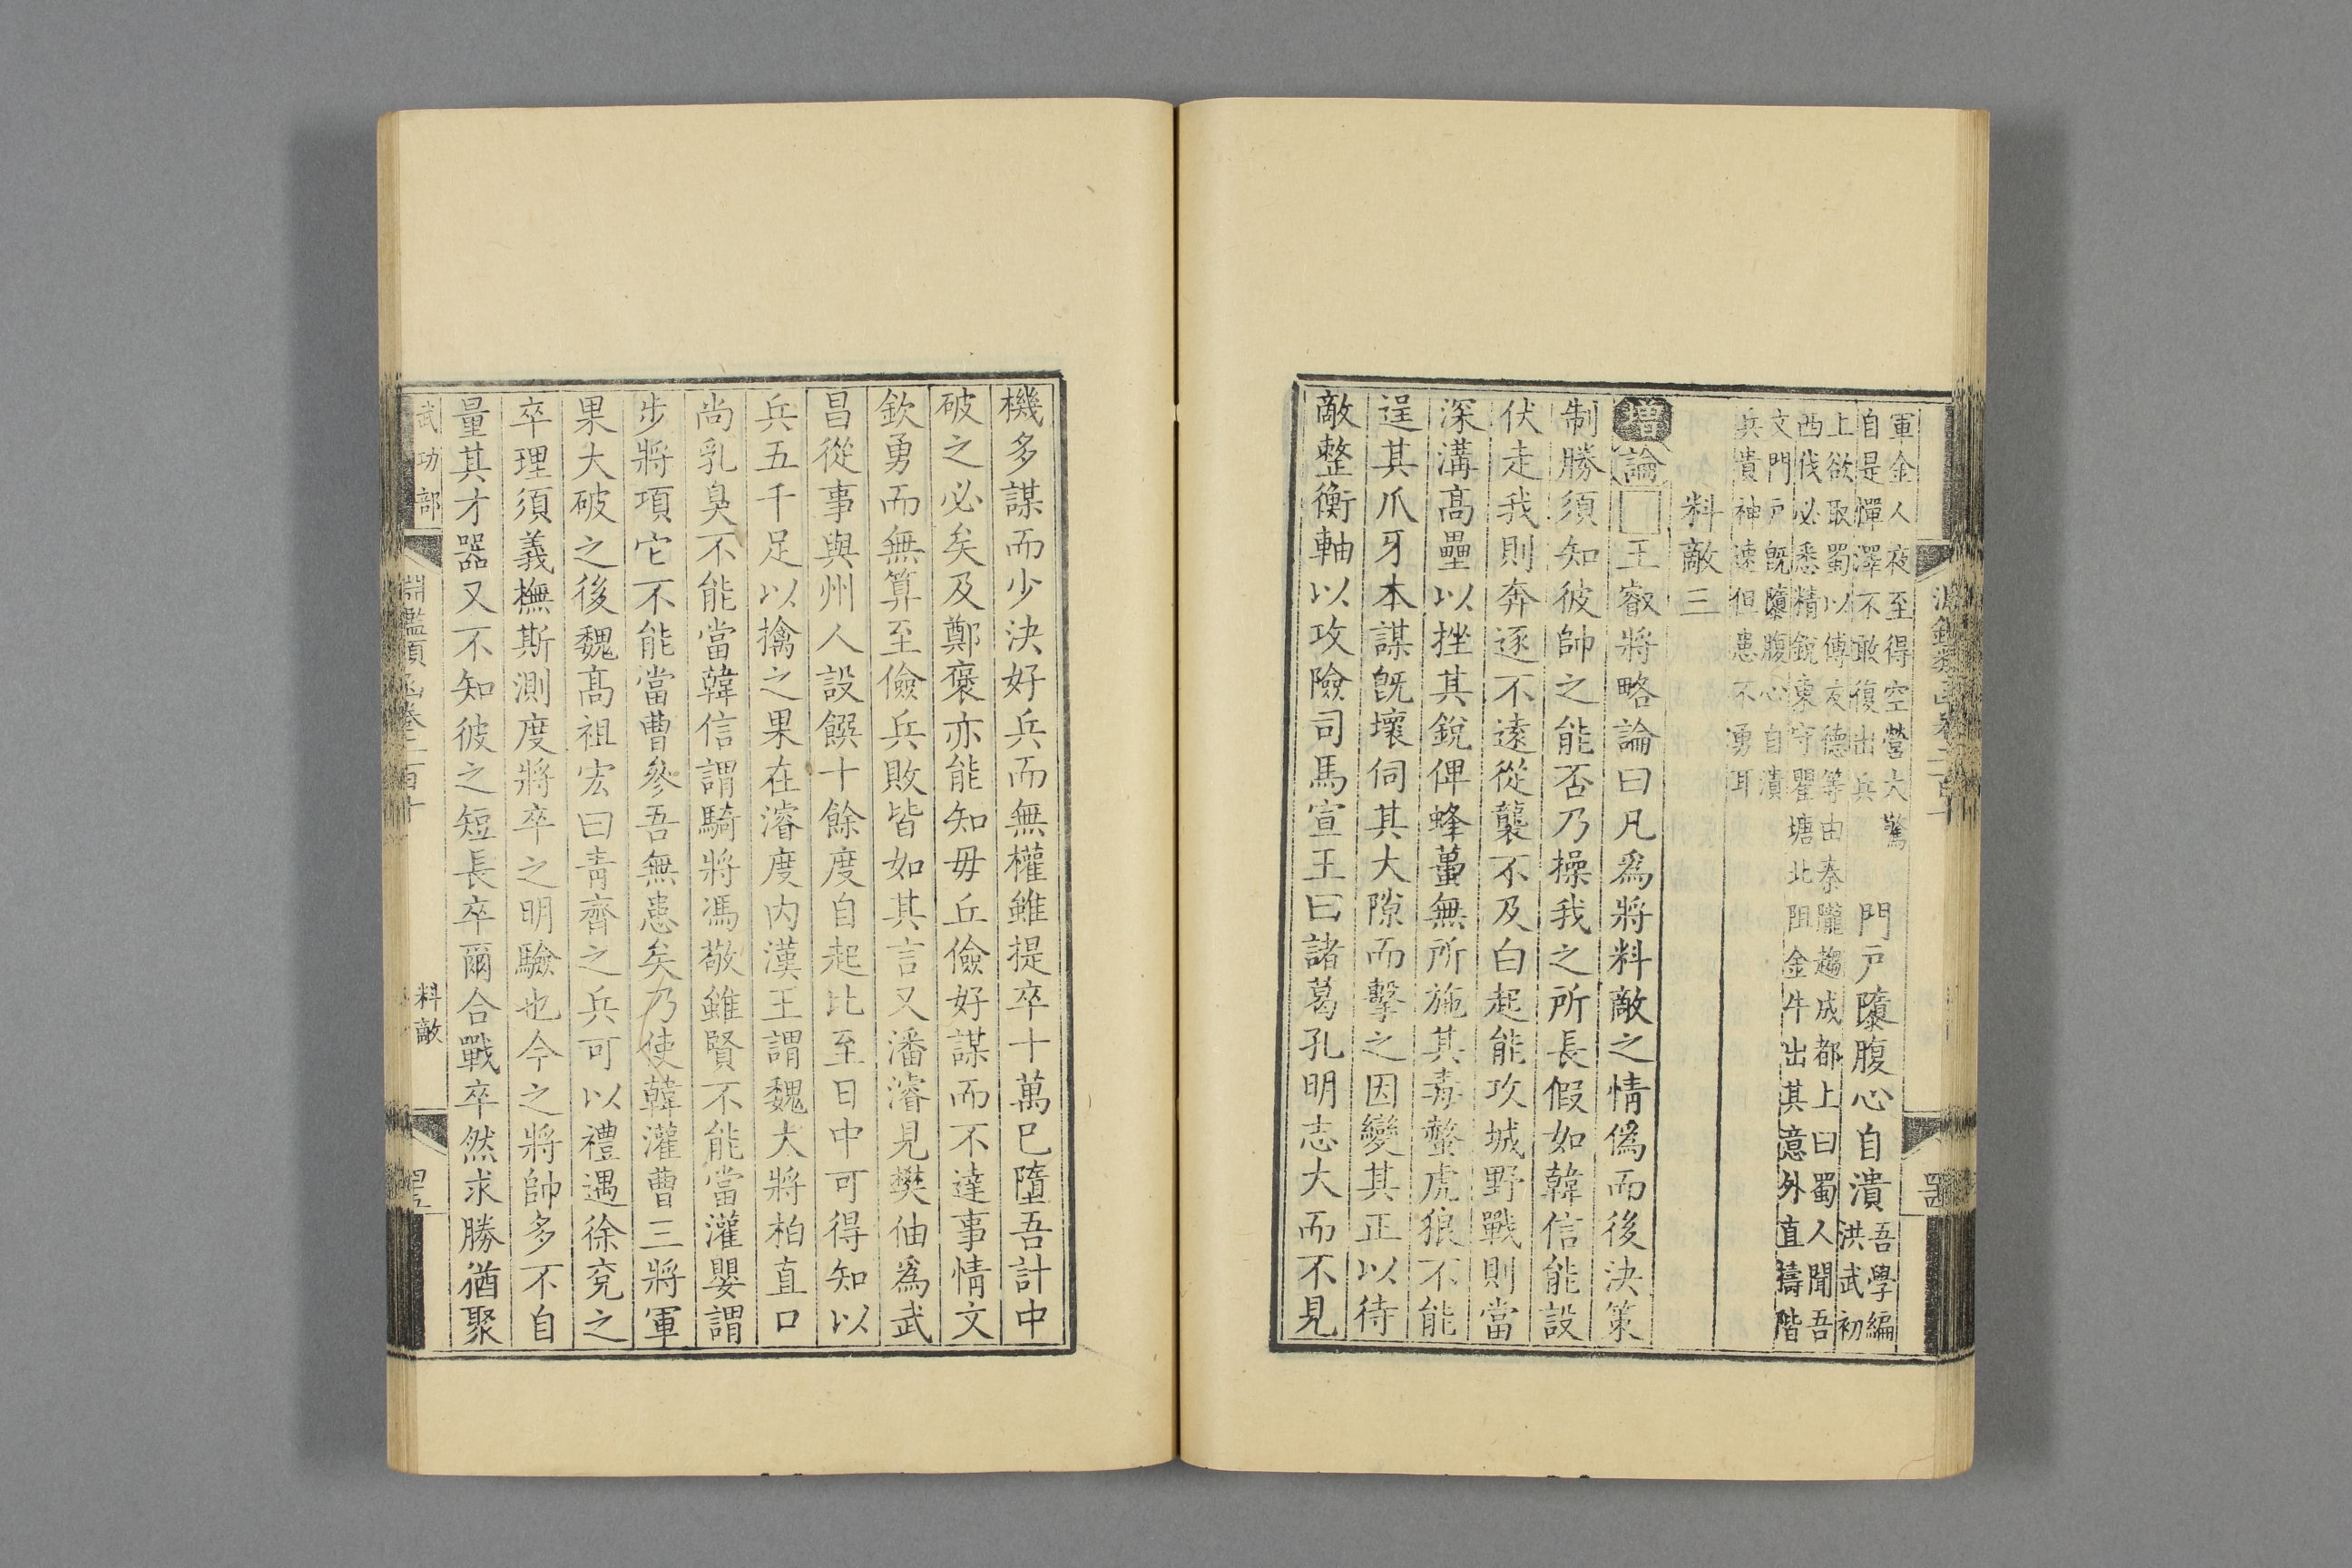 軍金人夜至得空營大驚
自是憚澤不敢復出兵
門戸隳腹心自潰
吾學編
洪武初
上欲取蜀以傅友德等由秦隴趨成都上曰蜀人聞吾
西伐必悉精銳東守瞿塘北阻金牛出其意外直擣階
文門戸旣隳腹心自潰
兵貴神速但患不勇耳
料敵三
增論王叡將略論曰凡爲將料敵之情僞而後決策
制勝須知彼帥之能否乃操我之所長假如韓信能設
伏走我則奔逐不遠從襲不及白起能攻城野戰則當
深溝高壘以挫其銳俾蜂蠆無所施其毒螫虎狼不能
逞其爪牙本謀旣壞伺其大隙而擊之因變其正以待
敵整衡軸以攻險司馬宣王曰諸葛孔明志大而不見
機多謀而少決好兵而無權雖提卒十萬已墮吾計中
破之必矣及鄭褒亦能知毋丘儉好謀而不達事情文
欽勇而無算至儉兵敗皆如其言又潘濬見樊伷爲武
昌從事與州人設饌十餘度自起比至日中可得知以
兵五千足以擒之果在濬度内漢王謂魏大將柏直口
尚乳臭不能當韓信謂騎將馮敬雖賢不能當灌嬰謂
步將項它不能當曹參吾無患矣乃使韓灌曹三將軍
果大破之後魏高祖宏曰靑齊之兵可以禮遇徐兖之
卒理須義撫斯測度將卒之明驗也今之將帥多不自
量其才器又不知彼之短長卒爾合戰卒然求勝猶聚
武功部
淵鑑類函卷二百十
料敵